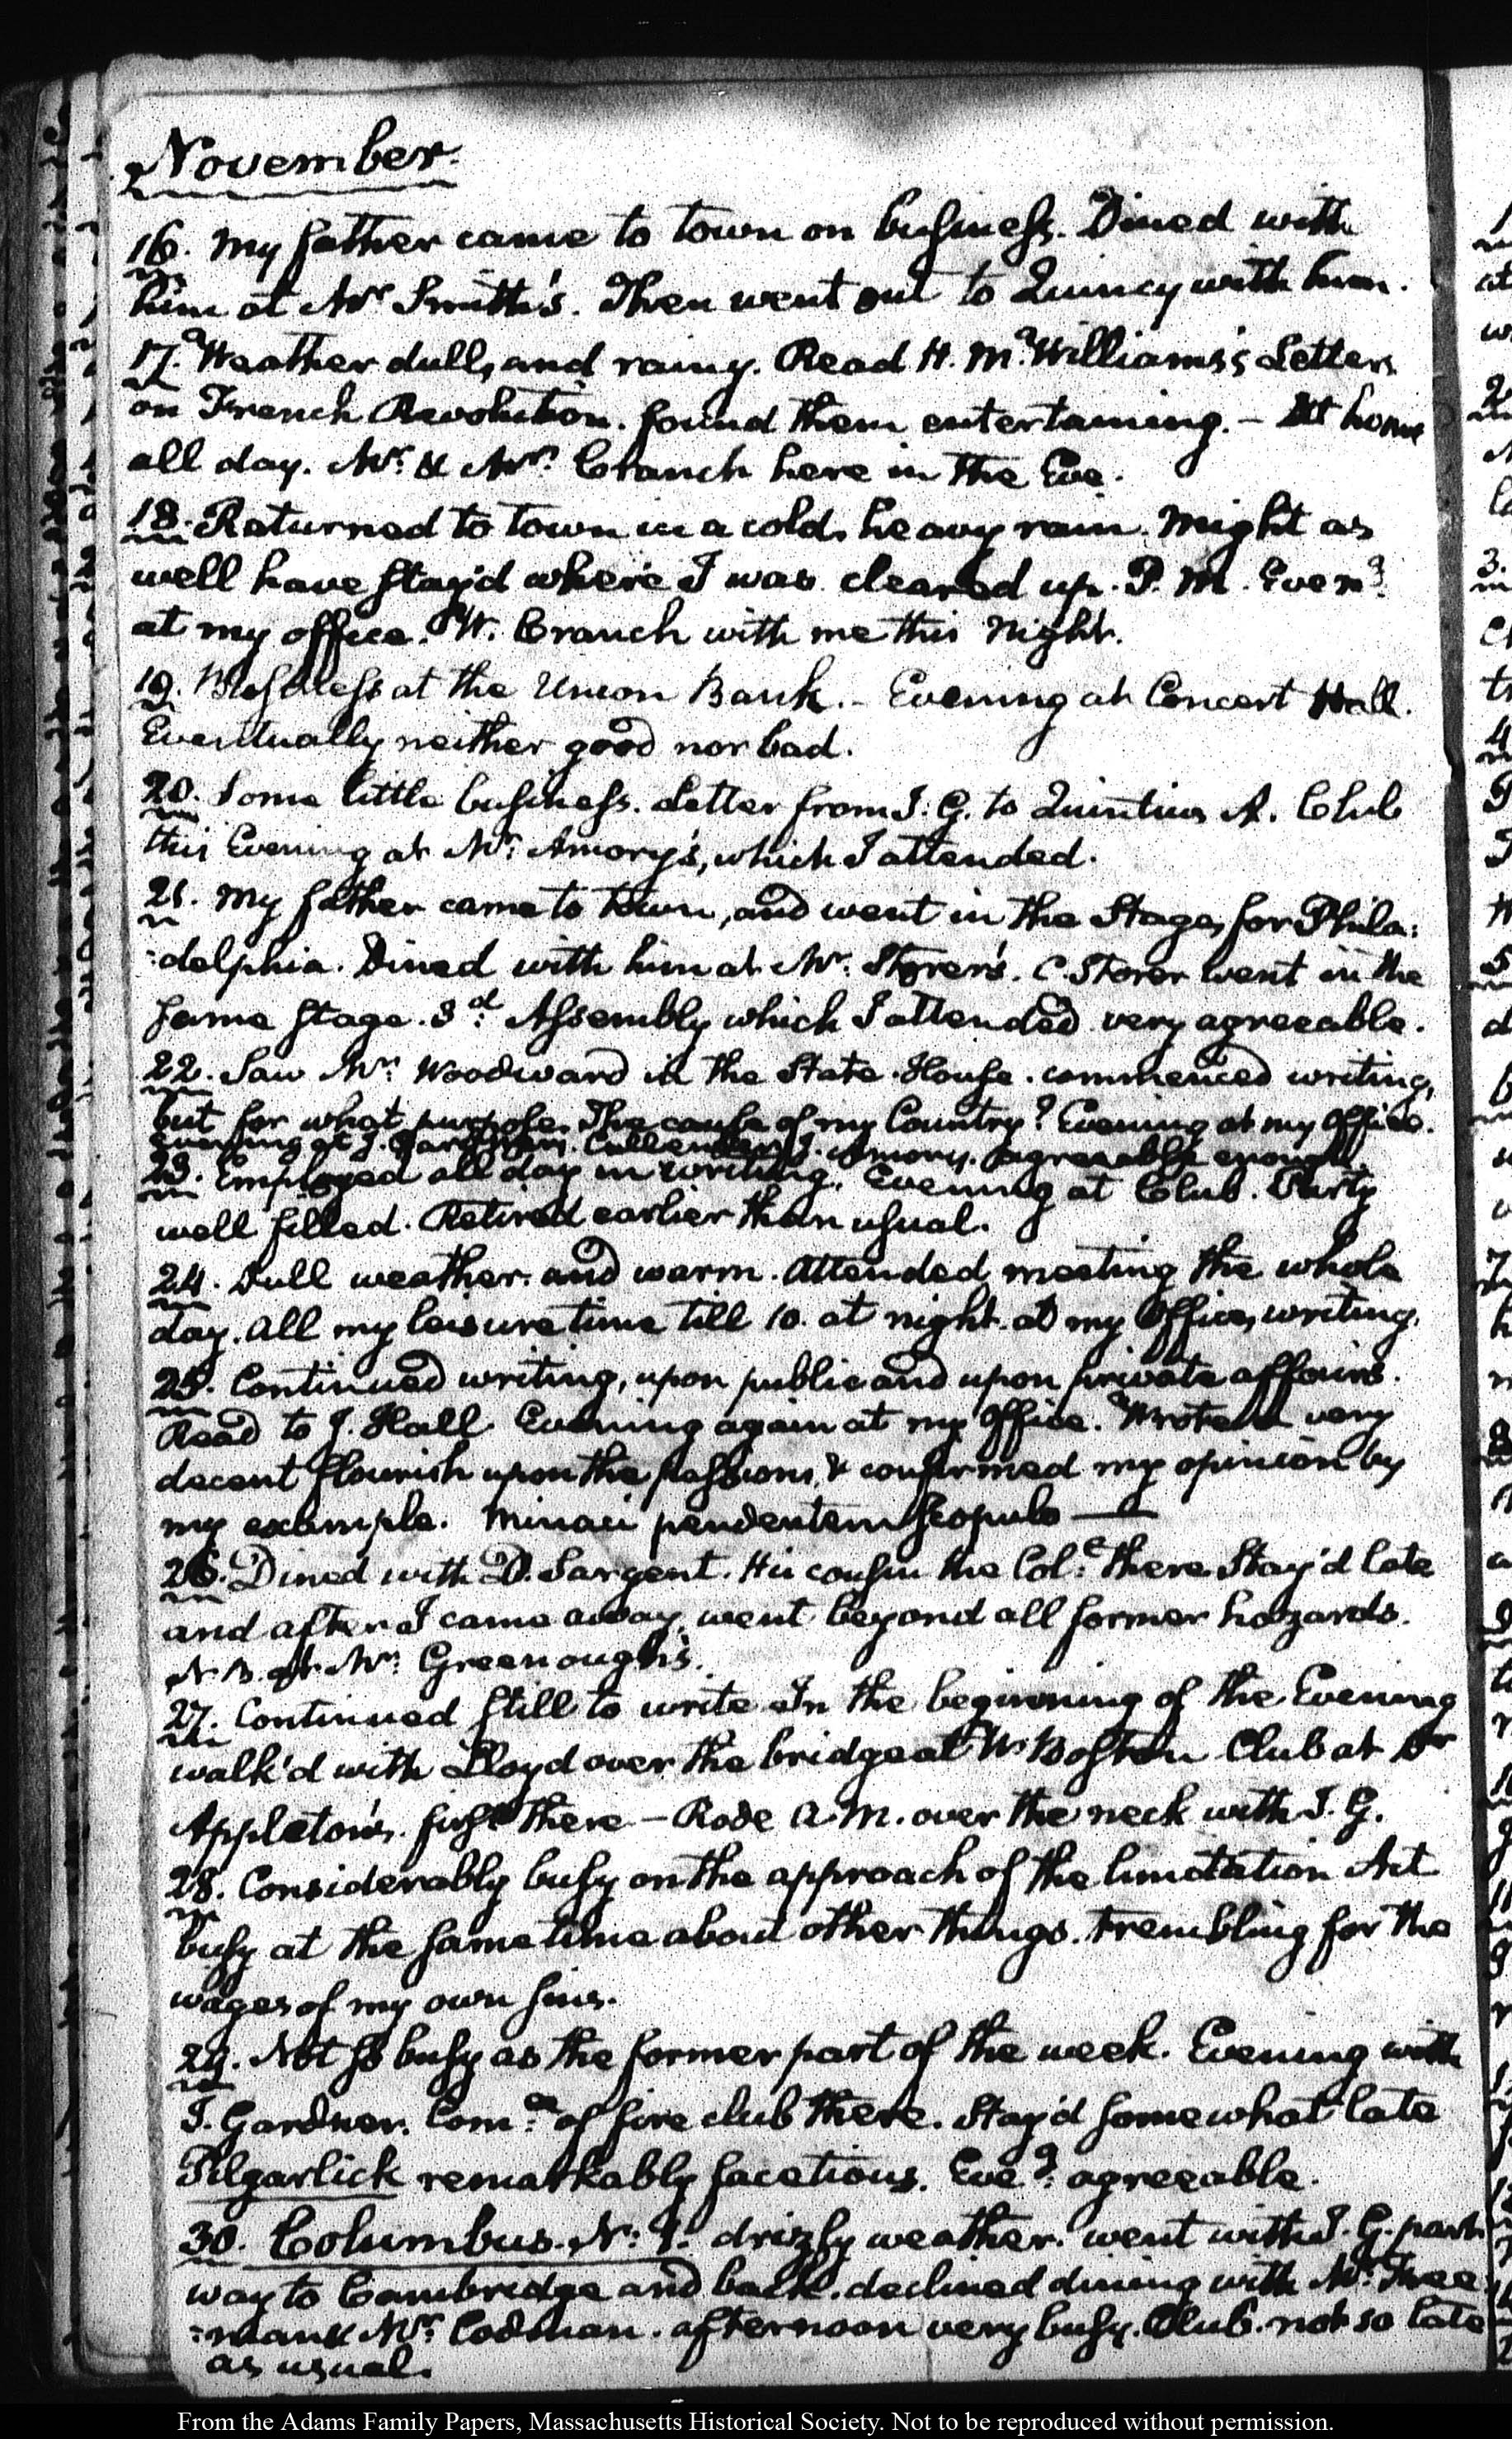 November.
16. My father came to town on business. Dined with
him at Mr. Smith's. Then went out to Quincy with him.
17. Weather dull, and rainy. Read H. M. Williams's Letters
on French Revolution. found them entertaining. – At home
all day. Mr. & Mrs. Cranch here in the Eve.
18. Returned to town in a cold, heavy rain. Might as
well have stay'd where I was. cleared up. P. M. Eveng.
at my office. W. Cranch with me this Night.
19. Business at the Union Bank. – Evening at Concert Hall.
Eventually neither good nor bad.
20. Some little business. Letter from J. G. to Quintius A. Club
this Evening at Mr. Amory's, which I attended.
21. My father came to town, and went in the Stage, for Phila:
:delphia. Dined with him at Mr. Storer's. C. Storer went in the
same stage. 3d. Assembly which I attended very agreeable.
22. Saw Mr. Woodward in the State-House. commenced writing,
but for what purpose. The cause of my Country? Evening at my Office.
Evening at J. Gardner's. Callender, J. Amory. agreeable enough.
23. Employed all day in writing. Evening at Club. Party
well filled. Retired earlier than usual.
24. Dull weather. and warm. Attended meeting the whole
day. All my leisure time till 10. at night. at my Office, writing.
25. Continued writing, upon public and upon private affairs.
Read to J. Hall. Evening again at my Office. Wrote a very
decent flourish upon the passions, & confirmed my opinion by
my example. Minaci pendentem scopulo —
26. Dined with D. Sargent. His cousin the Col: there Stay'd late
and after I came away, went beyond all former hazards.
N. B. at Mr. Greenough's.
27. Continued still to write In the beginning of the Evening
walk'd with Lloyd over the bridge at W. Boston Club at Dr
Appleton's. first there – Rode A. M. over the neck with J. G.
28. Considerably busy on the approach of the limitation Act
busy at the same time about other things. trembling for the
wages of my own sins.
29. Not so busy as the former part of the week. Evening with
J. Gardner. Comee. of fire club there. Stay'd somewhat late
Pilgarlick remarkably facetious. Eveg. agreeable.
30. Columbus. No: 1. drizly weather. went with J. G. part
way to Cambridge and back. declined dining with Mr. Free
:man & Mr. Codman. afternoon very busy. Club. not so late
as usual.
From the Adams Family Papers, Massachusetts Historical Society. Not to be reproduced without permission.